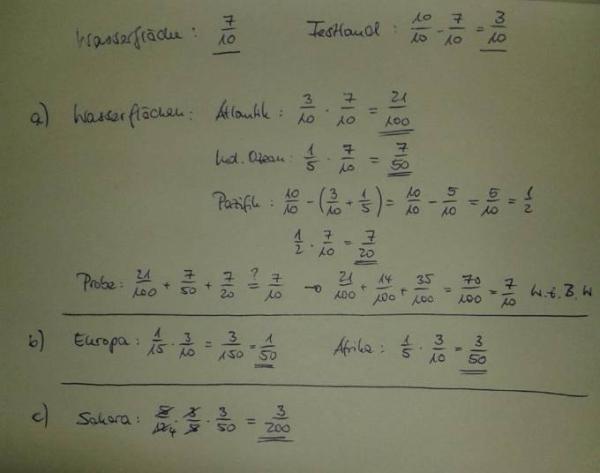 Wasserfläche: 7/10 Festland: 10/10 - 7/10 = 3/10
a) Wasserflächen: Atlantik: 3/10 · 7/10 = 21/100
Ind. Ozean: 1/5 · 7/10 = 7/50
Pazifik: 10/10 - (3/10 + 1/5) = 10/10 - 5/10 = 5/10 = 1/2
1/2 · 7/10 = 7/20
Probe: 21/100 + 7/50 + 7/20 ?= 7/10 → 21/100 + 14/100 + 35/100 = 70/100 = 7/10 W.z.B.W
b) Europa: 1/15 · 3/10 = 3/150 = 1/50 Afrika: 1/5 · 3/10 = 3/50
c) Sahara: · 3/50 = 3/200